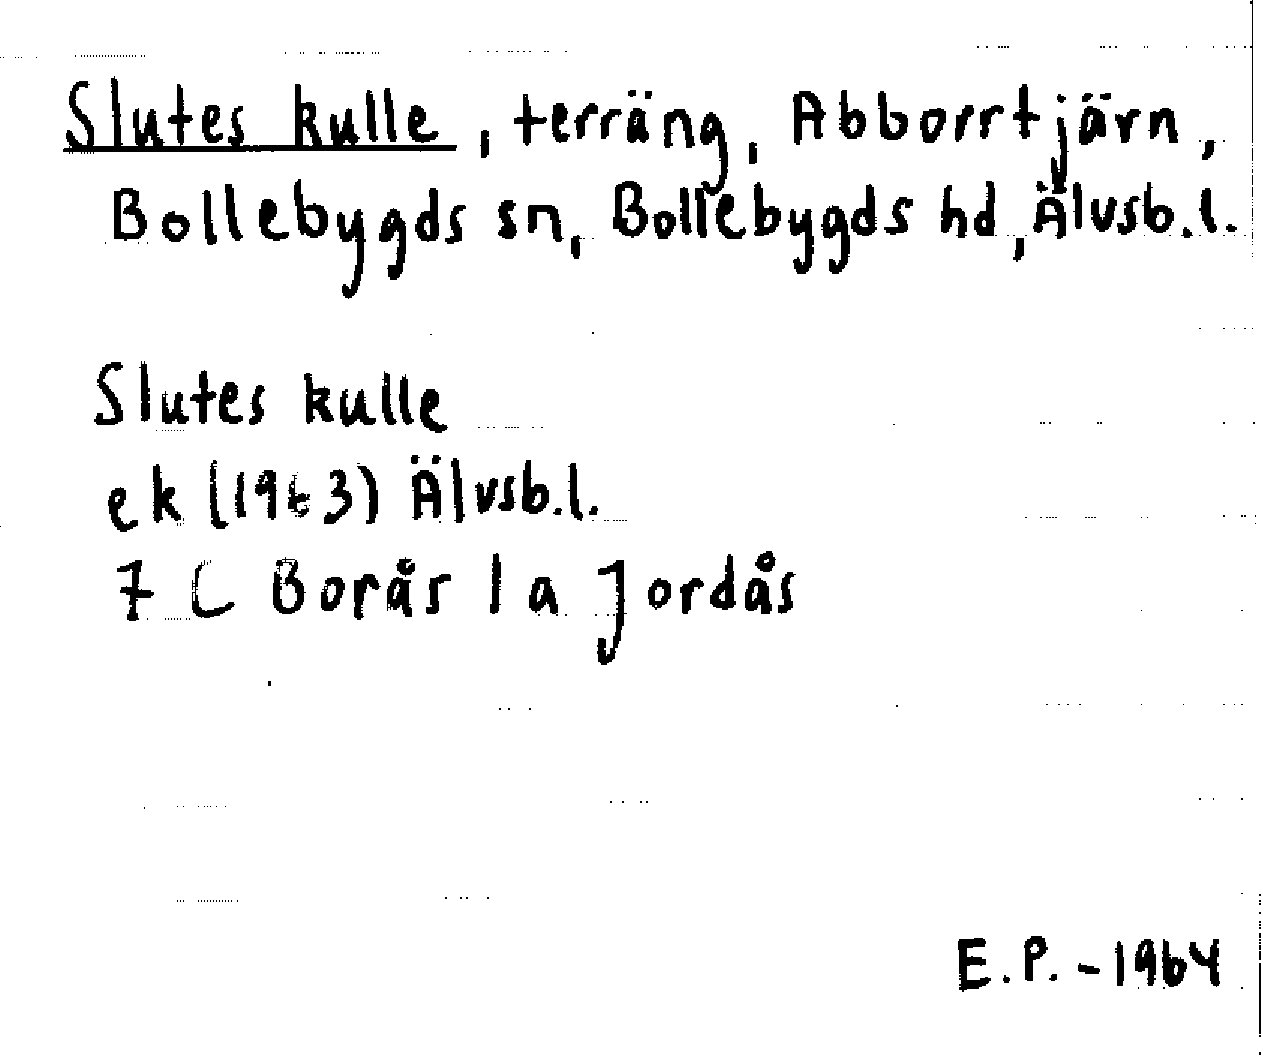 Slutes kulle, terräng, Abborrtjärn,
Bollebygds sn, Bollebygds hd, Älvsb.l.
Slutes kulle
ek (1963) Älvsb.l.
7 C Borås 1 a Jordås
E.P. - 1964